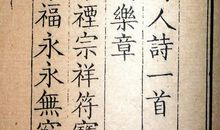 人詩一首
樂章
禋宗祥符寶
福永永無窮